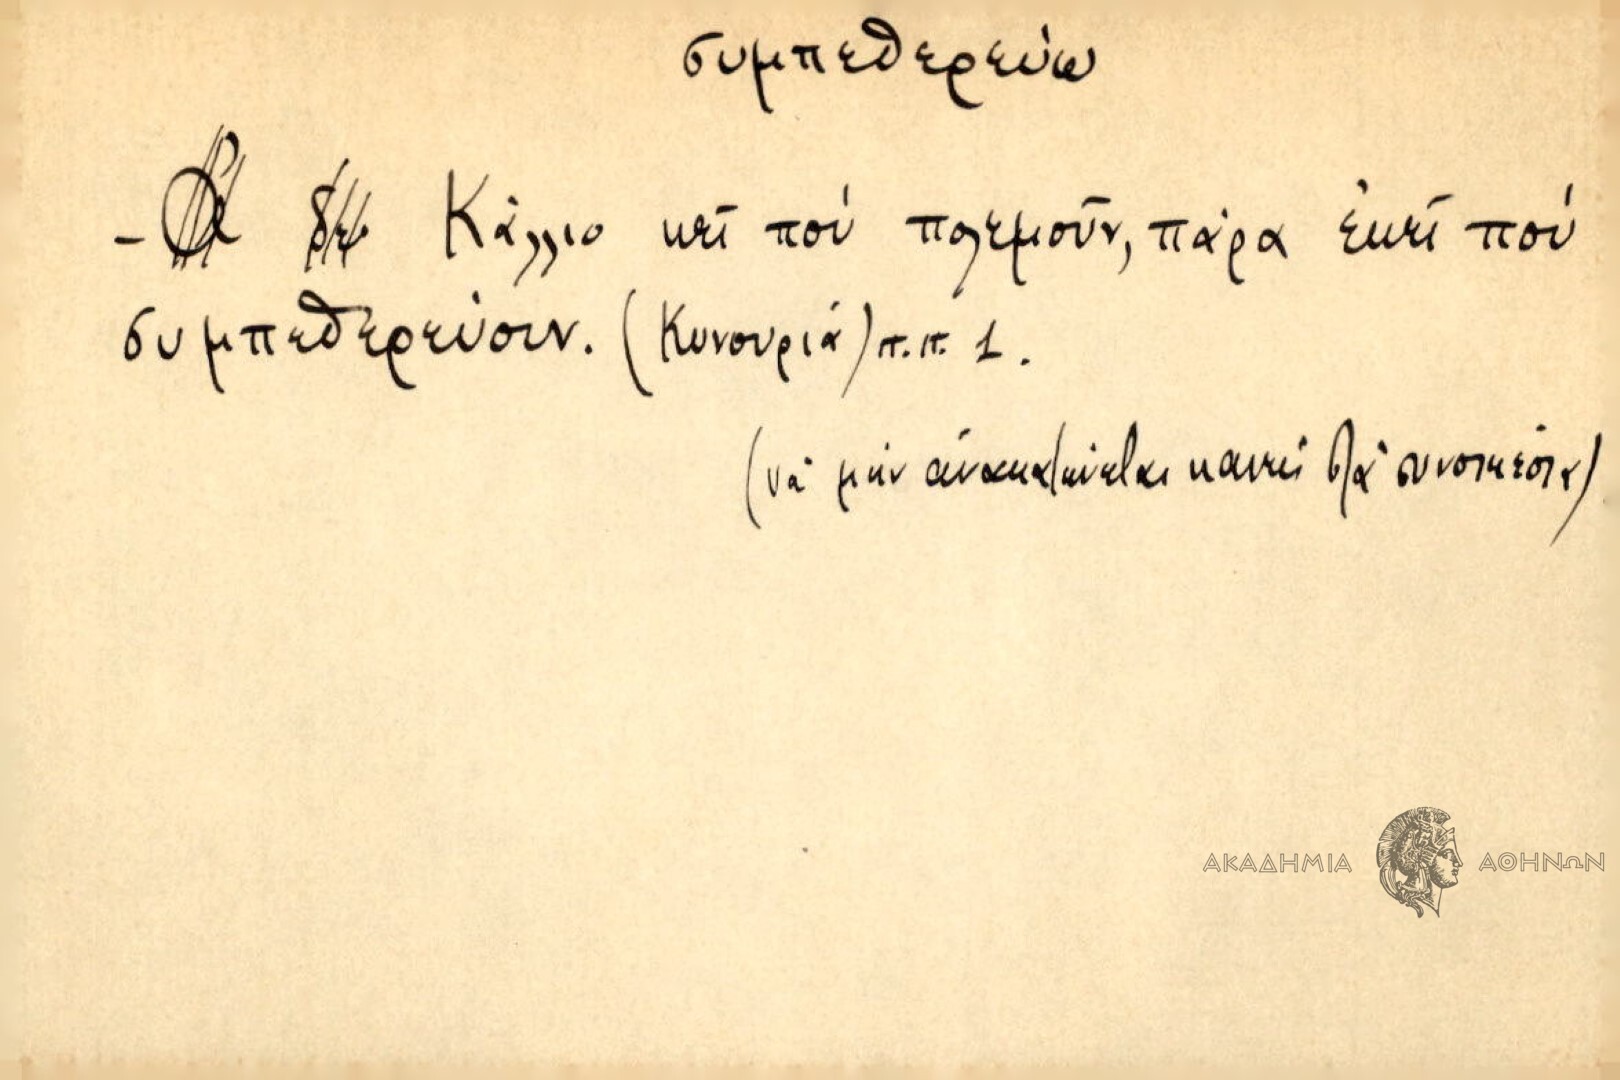 συμπεθερεύω
- Κάλλιο κεῖ πού πολεμοῦν, πάρα ἐκεῖ πού
συμπεθερεύουν. (Κυνουριά) π.π. 1.
(νά μήν ἀνακατεύεται κανείς στά συνοικέσια)
ΑΚΑΔΗΜΙΑ ΑΘΗΝΩΝ